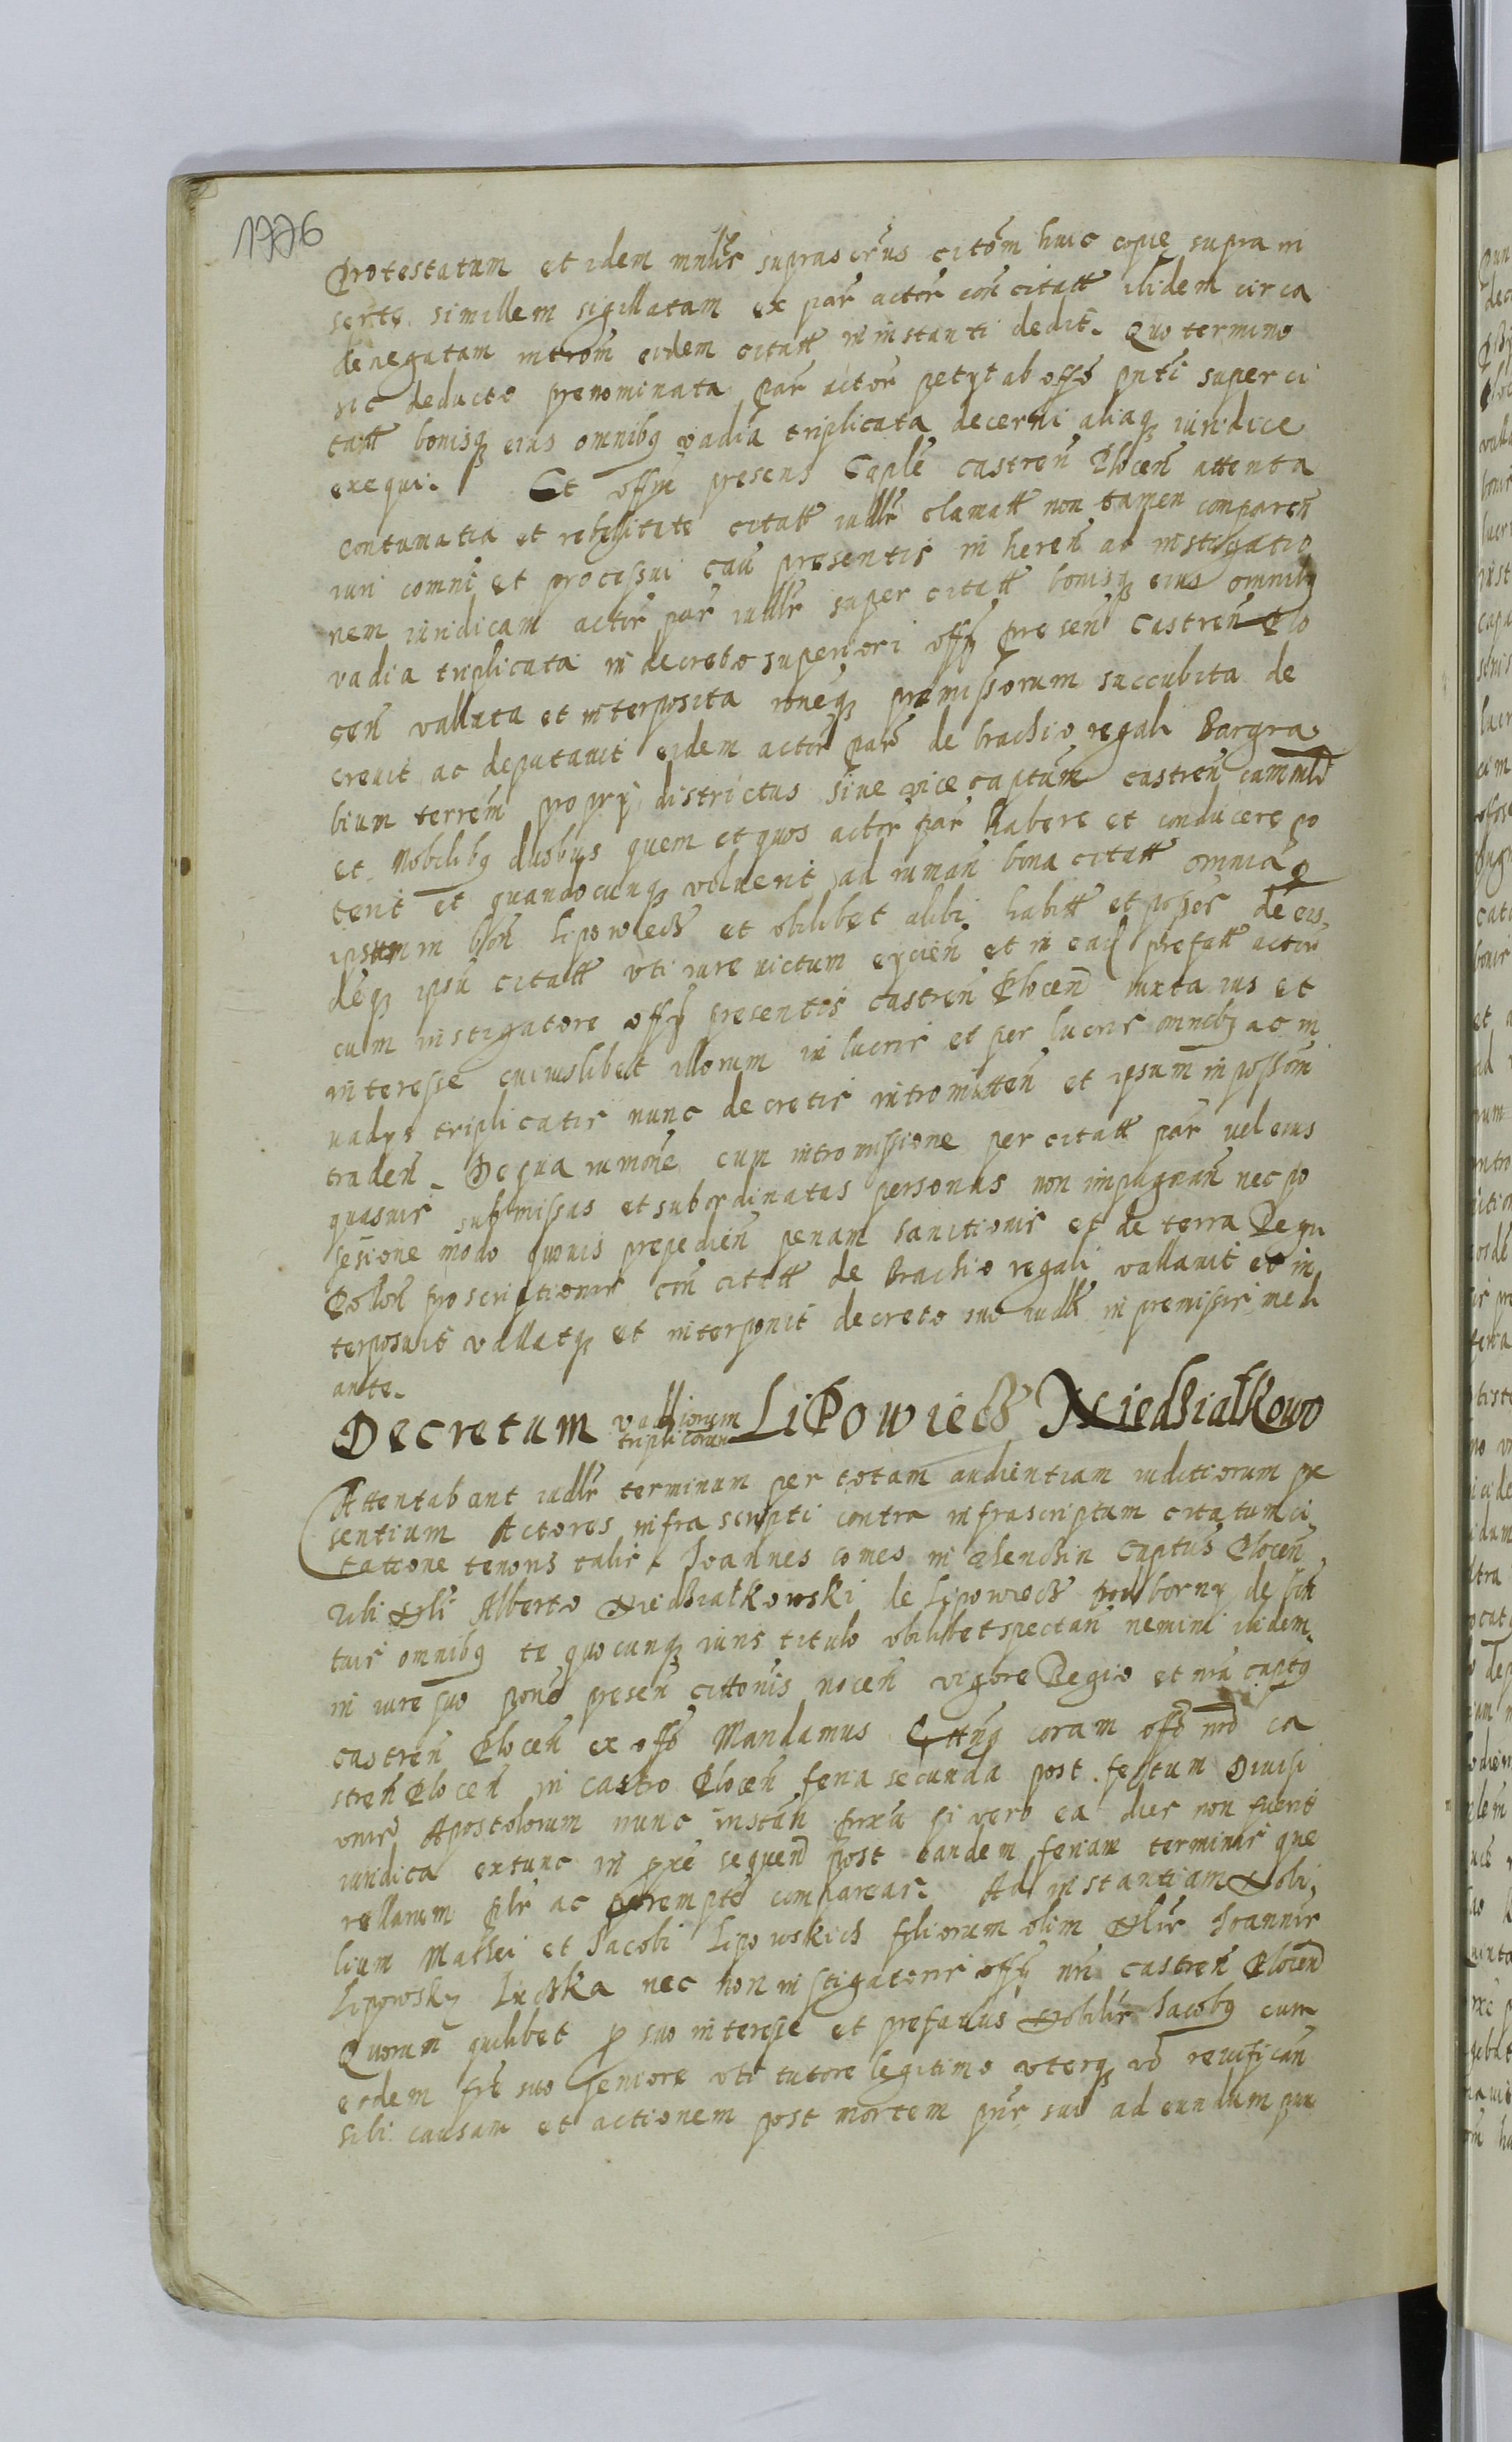 1776
Protestatum et idem mnlr suprascrus citom huic copie supra in
serte simillem sigillatam ex par actor con citatt ibidem circa
denegatam introm eidem citatt in instanti dedit. Quo termino
sic deducto prenominata par actor petyt ab offo pnti super ci
tatt bonisq eius omnibq vadia triplicata decerni aliaq iuridice
exequi. Et offm presens Caple castren Plocen attenta
contumatia et rebellitate citatt iudlr clamatt non tamen comparen
iuri comni et processui cau presentis in heren ac instigatio
nem iuridicam actor par iudlr super citatt bonisq eius omnibq
vadia triplicata in decreto superiori offy presen castren Plo
cen vallata et interposita roneq premissorum succubita de
creuit ac deputauit eidem actor par de brachio regali Burgra
bium terrem propry districtus siue vice captum castren cum mlr
et Nobilibq duobus quem et quos actor par habere et conducere po
terit et quandocunq voluerit ad ruman bona citatt omnia
ipsum in bon Lipowiecz et vbilibet alibi habitt et posses de eis
deq ipsu citatt vti iure victum eycien et in ea prefatt actor
cum instigatore offy presentis castren Plocen iuxta ius et
interesse cuiuslibet illorum in lucris et per lucris omnibq ac in
uadys triplicatis nunc decretis intromitten et ipsum in possom
traden. De qua rumone cum intromissione per citatt par uel eius
quasuis submissas et subordinatas personas non impugnan nec po
sesione modo quouis prepedien penam banitionis et de terra Regni
Polon proscriptionis con citatt de Brachio regali vallauit et in
terposuit vallatq et interponit decreto suo iudlr in premissis medi
ante.
Decretum vadiorum triplicorum Lipowiecz Niedzialkowo
Attentabant iudlr terminum per totam audientiam iuditiorum pre
sentium Actores infra scripti contra infrascriptum citatum ci
tatione tenoris talis. Joannes comes in Captus Plocen
Tibi Nli Alberto Niedzialkowski de Lipowiecz podborny de bon
tuis omnibq te quocunq iuris titulo vbilibet spectan nemini ibidem
in iure suo pono presen cittonis nocen vigore Regio et nra captq
castren Plocen ex offo Mandamus coram offo nro ca
stren Plocen in castro Plocen feria secunda post festum Diuisi
onis Apostolorum nunc instan si vero ea dies non fuerit
iuridica extunc in pxe sequen post eandem feriam terminis que
rellarum plr ac perempte compareas. Ad instantiam Nobi
lium Mathei et Jacobi Lipowskich filiorum olim Nlis Joannis
Lipowsky nec non instigatoris offy nri castren Plocen
Quorum quilibet p suo interesse et prefatus Nobilis Jacobq cum
eodem fre suo seniore vti tutore legitimo vterq vo reuifican
sibi causam et actionem post mortem pris sui ad eundum